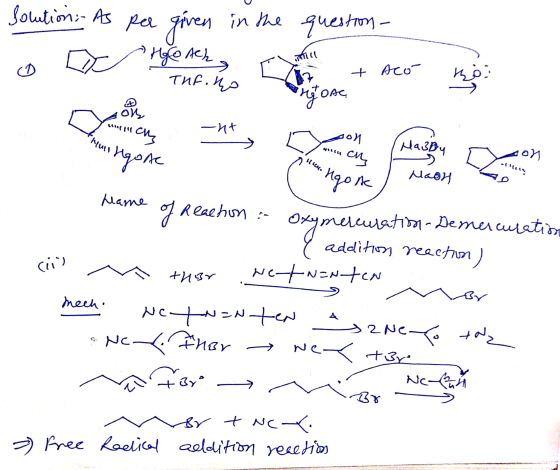 Solution:- As per given in the question-
(1) Hg(OAc)2 THF. H2O Hg+OAc + ACO- H2O:
OH2 CH3 HgOAc -H+ OH CH3 HgOAc NaBD4 NaOH OH D
Name of Reaction :- Oxymercuration-Demercuration
(addition reaction)
(ii) +HBr NC N=N CN Br
Mech. NC N=N CN Δ 2NC +N2
NC +HBr → NC +Br•
+Br• → Br NC H
Br + NC
⇒ Free Radical addition reaction